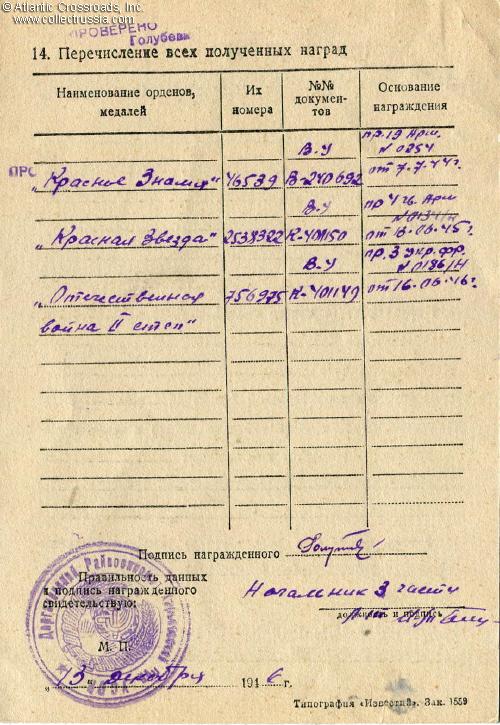 © Atlantic Crossroads, Inc.
www.collectrussia.com
ПРОВЕРЕНО
Голубева
14. Перечисление всех полученных наград
Наименование орденов, медалей
Их номера
№№ документов
Основание награждения
ПРО
„Красное Знамя"
46539
В.У
В-240692
пр. 19 Арм.
N 0254
от 7-7-44г.
„Красная Звезда"
2538322
В.У
К-401150
пр 4 гв. Арм
N 0134/н
„Отечественная
война II степ"
756975
В.У
К-401149
пр. 3 Укр. фр.
N 0186/н
Подпись награжденного
Правильность данных
и подпись награжденного
свидетельствую:
Начальник 3 части
должность и подпись
М. П.
„13" декабря 1946 г.
Типография «Известий». Зак. 1559